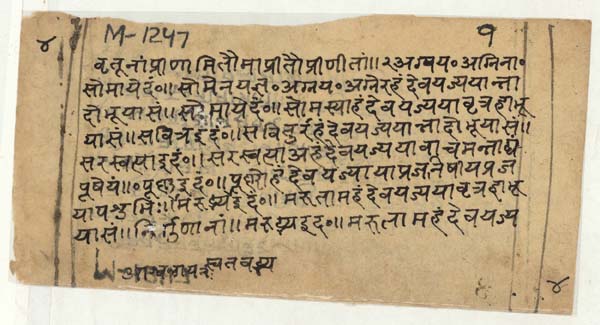 M-1247
४
१
वृतूनांप्राणामितौमाप्रीतौप्रीणीतां॥२अग्नय॰अग्निना॰
सोमायेदं॰॥सोमेनयज्ञ॰अग्नय॰अग्नेरहंदेवयज्ययान्ना
दोभूयासं॥सोमायेदं॰॥सोमस्याहंदेवयज्ययावृत्रहाभू
यासं॥सवित्रइदं॰॥सवितुरहंदेवयज्ययान्नादोभूयासं॥
सरस्वत्याइदं॰॥सरस्वत्याअहंदेवयज्ययावाचमन्नाद्य
पूषेयं॥॰पूष्णइदं॰॥पूष्णोहंदेवयज्ययाप्रजनिषीयप्रज
यापशुभिः॥मरुद्भ्यइदं॰॥मरुतामहंदेवयज्ययावृत्रहाभू
यासं॥निर्गुणानां॥मरुद्भ्यइदं॰॥मरुतामहंदेवयज्य
४